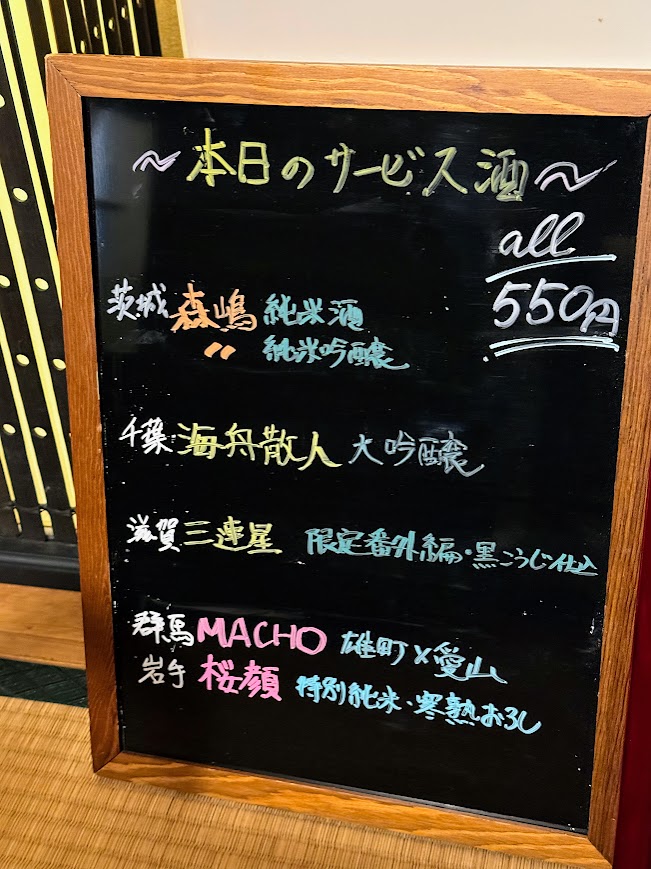 ～本日のサービス酒～
all
550円
茨城 森嶋 純米酒
〃 純米吟醸
千葉 海舟散人 大吟醸
滋賀 三連星 限定番外編・黒こうじ仕込
群馬 MACHO 雄町×愛山
岩手 桜顔 特別純米・寒熟おろし